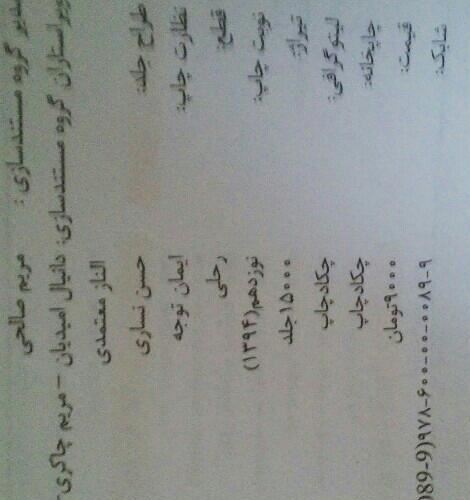 مدیر گروه مستندسازی: مریم صالحی
ویراستاران گروه مستندسازی: دانیال امیدیان - مریم چاکری-
الناز معتمدی
طراح جلد: حسن نساری
نظارت چاپ: ایمان توجه
قطع: رحلی
نوبت چاپ: نوزدهم(۱۳۹۴)
تیراژ: ۱۵۰۰۰جلد
لیتوگرافی: چکادچاپ
چاپخانه: چکادچاپ
قیمت: ۹۰۰۰تومان
شابک: ۹۷۸-۶۰۰-۰۰-۰۰۸۹-۹(89-9